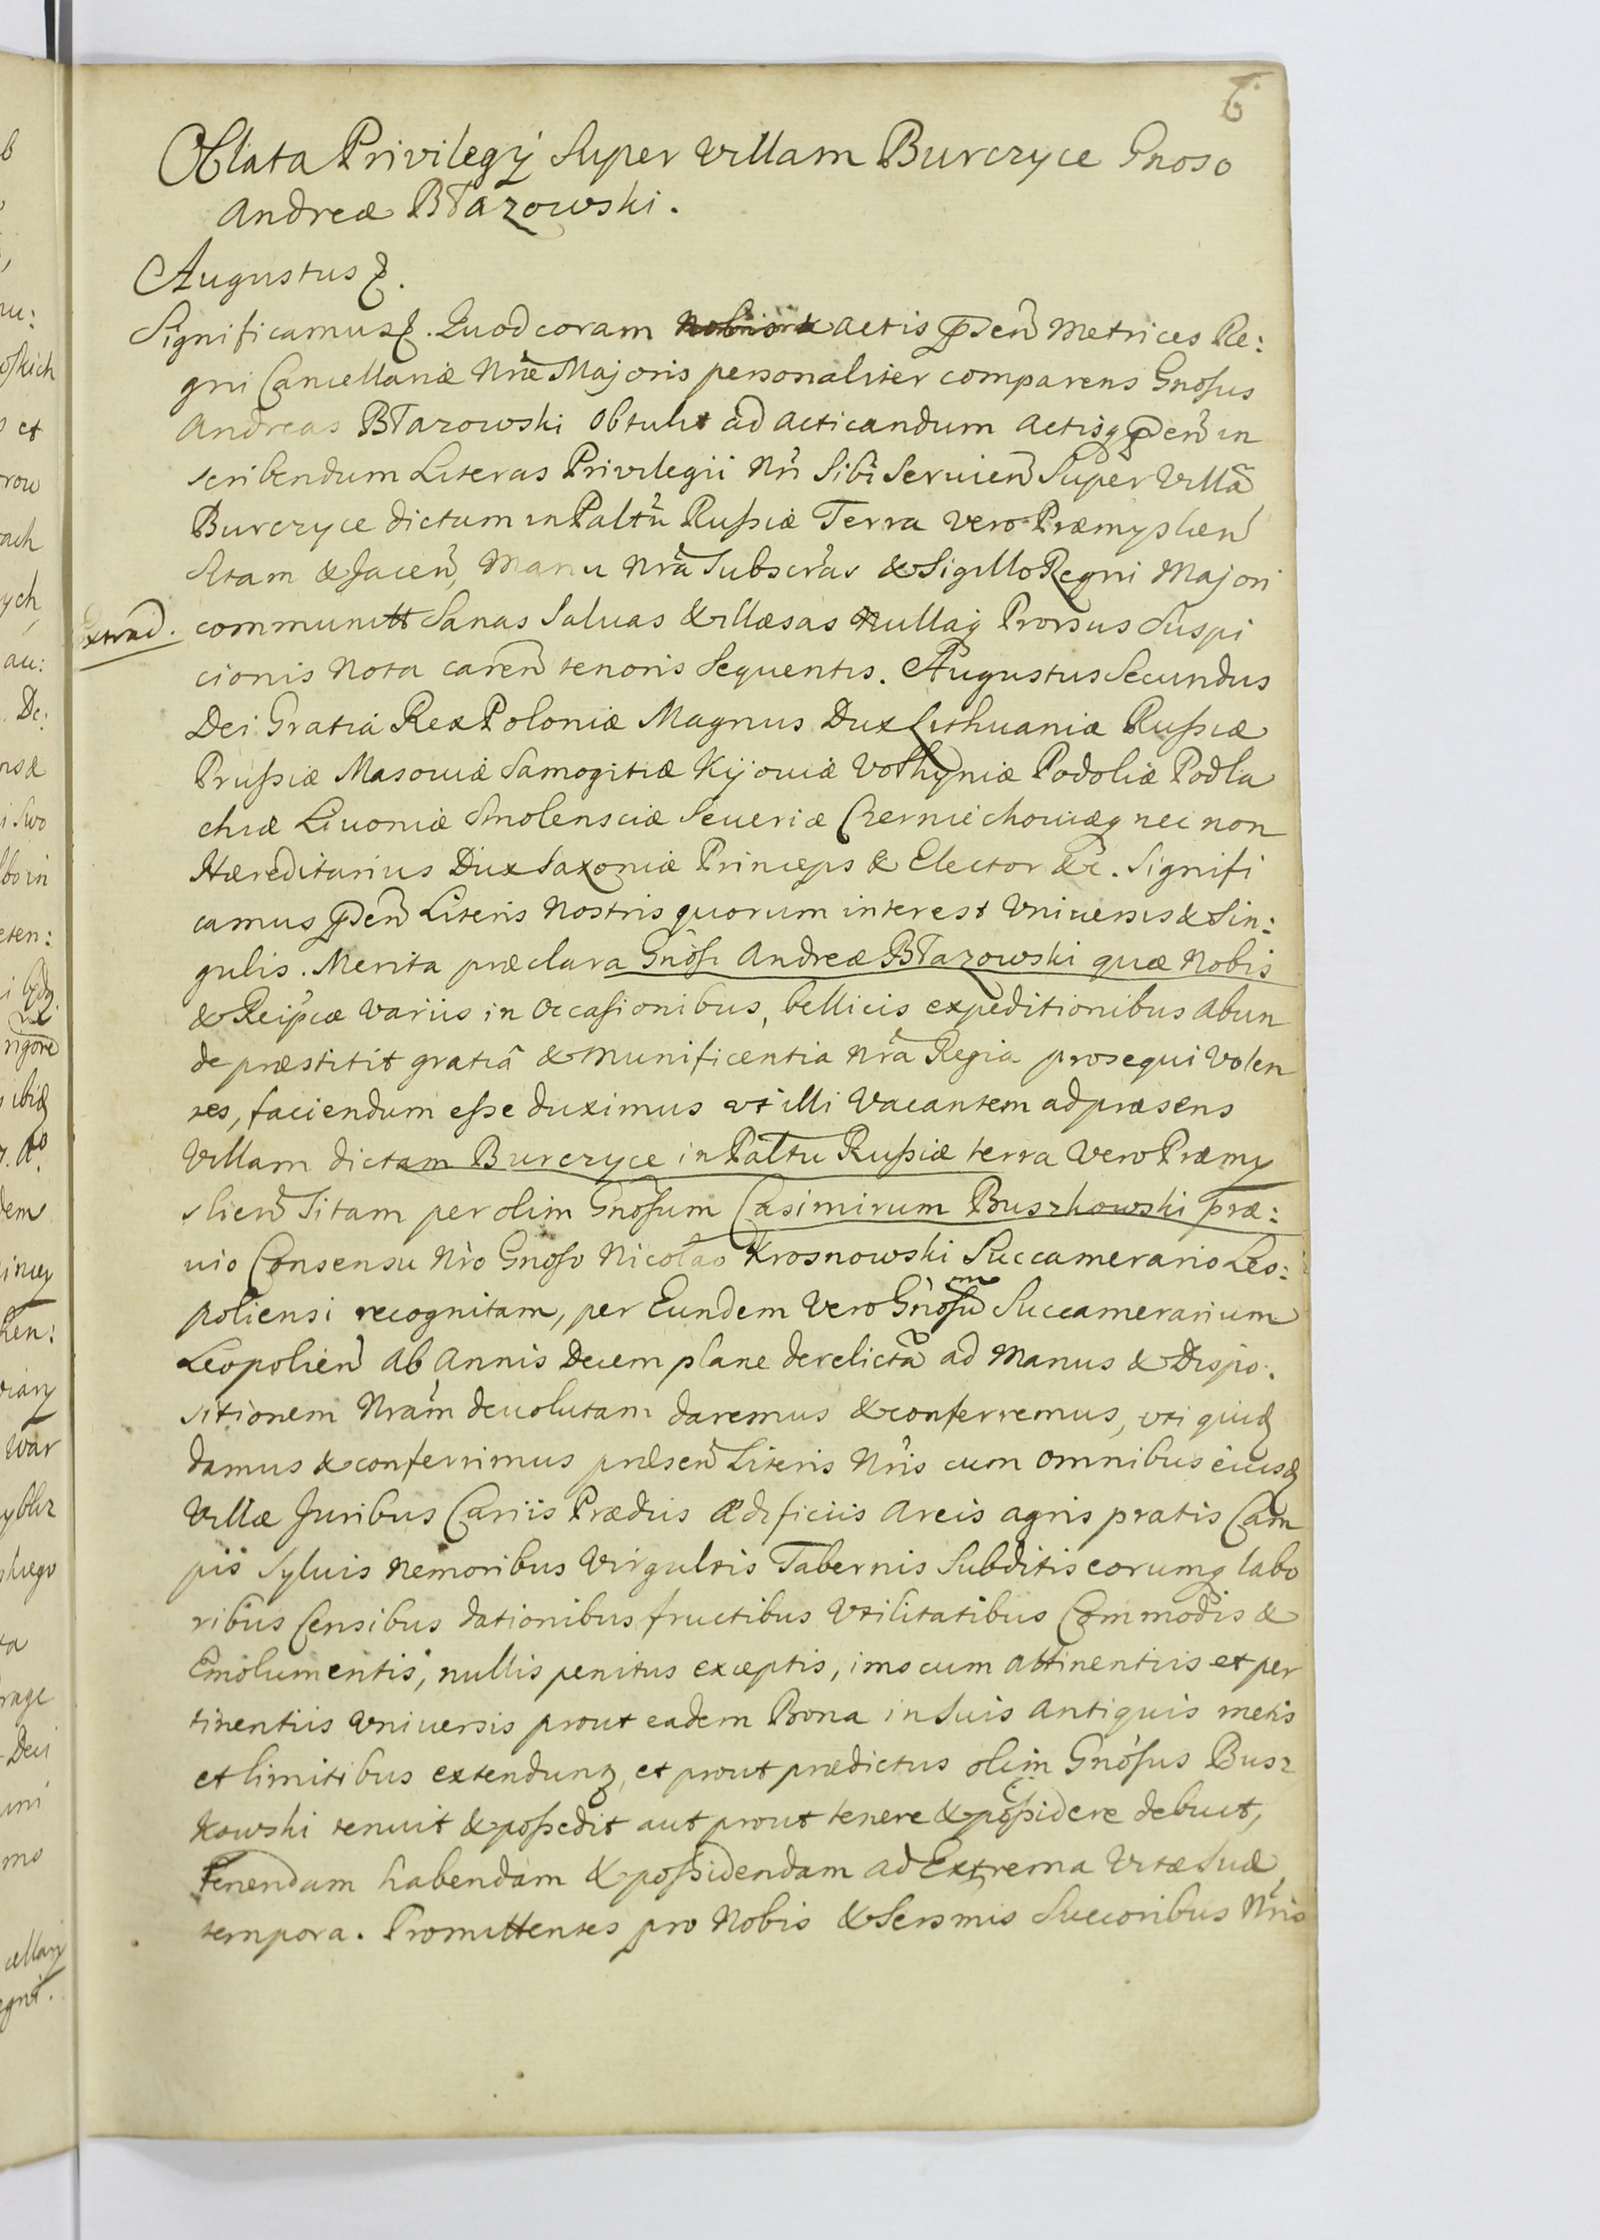 6.
Oblata Privilegÿ Super Villam Burczyce Gnoso
Andreæ Błazowski.
Augustus
Significamus. Quod coram actis Metrices Re:
gni Cancellariæ Nræ Majoris personaliter comparens Gnosus
Andreas Błazowski obtulit ad acticandum actisq in
scribendum Literas Privilegii Nri Sibi Seruien Super Villã
Burczyce dictam in Paltũ Russiæ Terra vero Præmyslien
sitam & Jacen, Manu Nrã Subscras & Sigillo Regni Majori
Extrad.
communitt Sanas Saluas & illæsas nullaq Prorsus Suspi
cionis Nota caren tenoris Sequentis. Augustus Secundus
Dei Gratia Rex Poloniæ Magnus Dux Lithuaniæ Russiæ
Prussiæ Masouiæ Samogitiæ Kijouiæ Volhyniæ Podoliæ Podla
chiæ Liuoniæ Smolensciæ Seueriæ Czerniechouiæq nec non
Hæreditarius Dux Saxoniæ Princeps & Elector &c. Signifi
camus Literis Nostris quorum interest Vniuersis & Sin:
gulis. Merita præclara Gnosi Andreæ Błazowski quæ Nobis
& Reipcæ variis in Occasionibus, bellicis expeditionibus abun
de præstitit gratiâ & munificentia Nrã Regia prosequi Volen
tes, faciendum esse duximus vt illi Vacantem ad præsens
Villam dictam Burczyce in Paltu Russiæ terra vero Præmy
slien Sitam per olim Gnosum Casimirum Buszkowski præ:
uio Consensu Nro Gnoso Nicolao Krosnowski Succamerario Leo:
poliensi recognitam, per Eundem vero Gnosum Succamerarium
Leopolien ab Annis Decem plane derelictã ad Manus & Dispo:
sitionem Nram deuolutam daremus & conferremus, vti quid
damus & conferrimus præsen Literis Nris cum omnibus eiusd
Villæ Juribus Cariis Prædiis ædificiis areis agris pratis Cam
pis Syluis Nemoribus Virgultis Tabernis Subditis eorumq labo
ribus Censibus dationibus fructibus Vtilitatibus Commodis &
Emolumentis, nullis penitus exceptis, imo cum attinentiis et per
tinentiis Vniuersis prout eadem Bona in Suis Antiquis metis
et limitibus extendunt, et prout prædictus olim Gnosus Busz
kowski tenuit & possedit aut prout tenere & possidere debuit,
Tenendam habendam & possidendam ad Extrema Vitæ Suæ
tempora. Promittentes pro Nobis & Sersmis Succoribus Nris